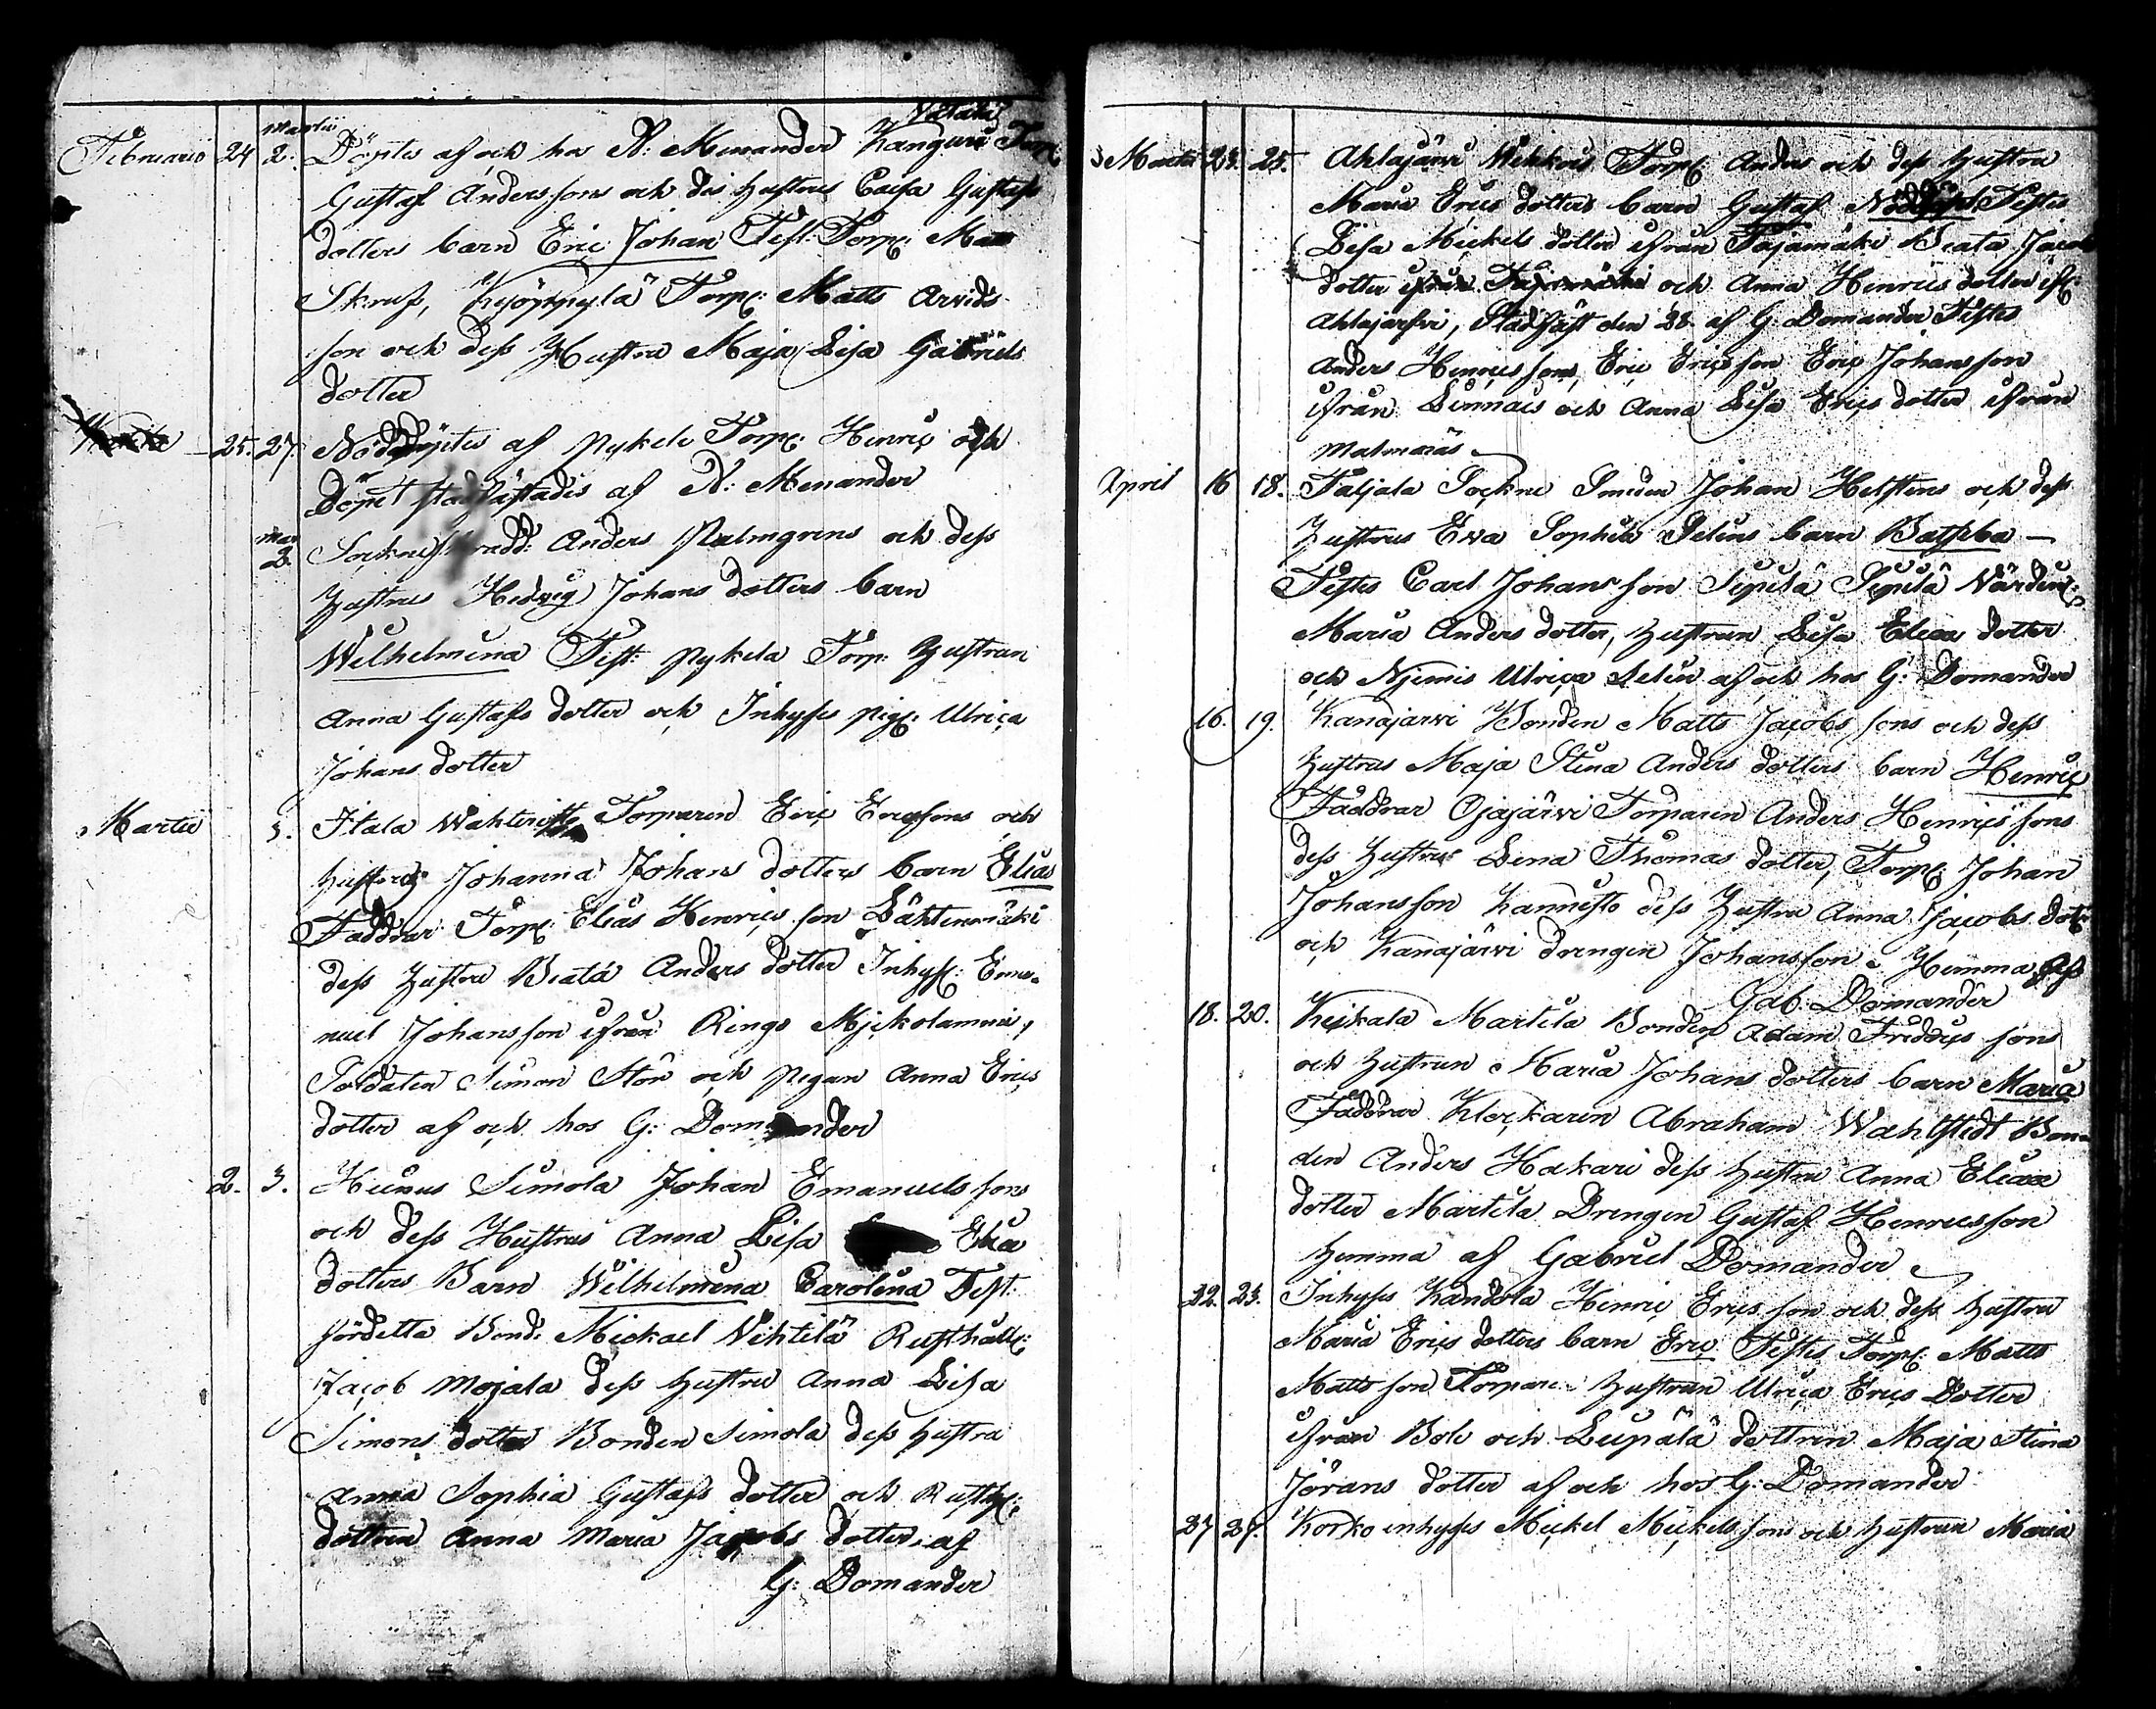 Martii
Februarii 24 2. Döptes af och hos N: Menander Kangari Torp:
Gustaf Anders sons och dess hustrus Caisa Gustafs
dotters barn Eric Johan Test: Torp: Matts
Skruf, Kyöppylä Torp: Matts Arvids
son och dess Hustru Maja Lisa Gabriels
dotter
25. 27. Nöddöptes af Pykele Torp: Henric och
Döpet stadfästades af N: Menander
Mar 2. Sockne Anders Palmgrens och dess
hustrus Hedvig Johans dotters barn
Wilhelmina Test: Pykela Torp: hustrun
Anna Gustafs dotter och Inhyses pig: Ulrica
Johans dotter
Martii 3. Itala Torparen Eric Ericssons och
hustrus Johanna Johans dotters barn Elias
Faddrar Torp: Elias Henrics son Lähtenmäki
dess hustru Beata Anders dotter Inhys: Ema-
nuel Johansson ifrån Ringo Myckolamma,
Soldaten Simon Stor och pigan Anna Erics
dotter af och hos G: Domander
2. 3. Simola Johan Emanuels sons
och dess Hustrus Anna Lisa Elia
dotters Barn Wilhelmina Carolina Test:
fördetta Bond: Mickael Vihtilä Rusthåll:
Jacob Mojala dess hustru Anna Lisa
Simons dotter Bonden Simola dess hustra
Anna Sophia Gustafs dotter och Rusth:
dottren Anna Maria Jacobs dotter af
G: Domander
Martii 23. 25. Ahlajärvi Torp: Anders och dess hustru
Maria Erics dotters barn Gustaf Testes
Lisa Mickels dotter ifrån Pajamäki Beata Jacobs
dotter och Anna Henrics dotter ifr:
Ahlajärfvi, Stadfäst den 28 af G: Domander Testes
Anders Henrics son, Eric Ericsson Eric Johansson
ifrån Linnais och Anna Lisa Erics dotter ifrån
Malmnäs
April 16 18. Taljala Sockne Smeden Johan Helstens och dess
hustrus Eva Sophia Selins barn Batseba
Testes Carl Johans son Sipilä Sipilä Värdin:
Maria Anders dotter, hustrun Lisa Elias dotter
och Ulrica Selin af och hos G: Domander
16. 19. Kanajärvi Bonden Matts Jacobs sons och dess
hustrus Maja Stina Anders dotters barn Henric
Faddrar Ojajärvi Torparen Anders Henrics sons
dess hustru Lena Thomas dotter, Torp: Johan
Johansson Kannisto dess hustru Anna Jacobs dot:
och Kanajärvi drengen Johansson Hemma af
Gab: Domander
18. 20. Keikala Martila Bonden Adam Fridrics sons
och hustrun Maria Johans dotters barn Maria
Faddrar Klockaren Abraham Wahlstedt Bon-
den Anders Hakari dess hustru Anna Elias
dotter Martila Drengen Gustaf Henricsson
hemma af Gabriel Domander
22. 23. Inhyses Kandola Henric Erics son och dess hustru
Maria Erics dotters barn Eric Testes Torp: Matts
Matts son Torpare hustrun Ulrica Erics Dotter
ifrån Bole och Leipälä dottren Maja Stina
Jörans dotter af och hos G: Domander
27 27. Korko inhyses Mickel Mickels sons och hustrun Maria